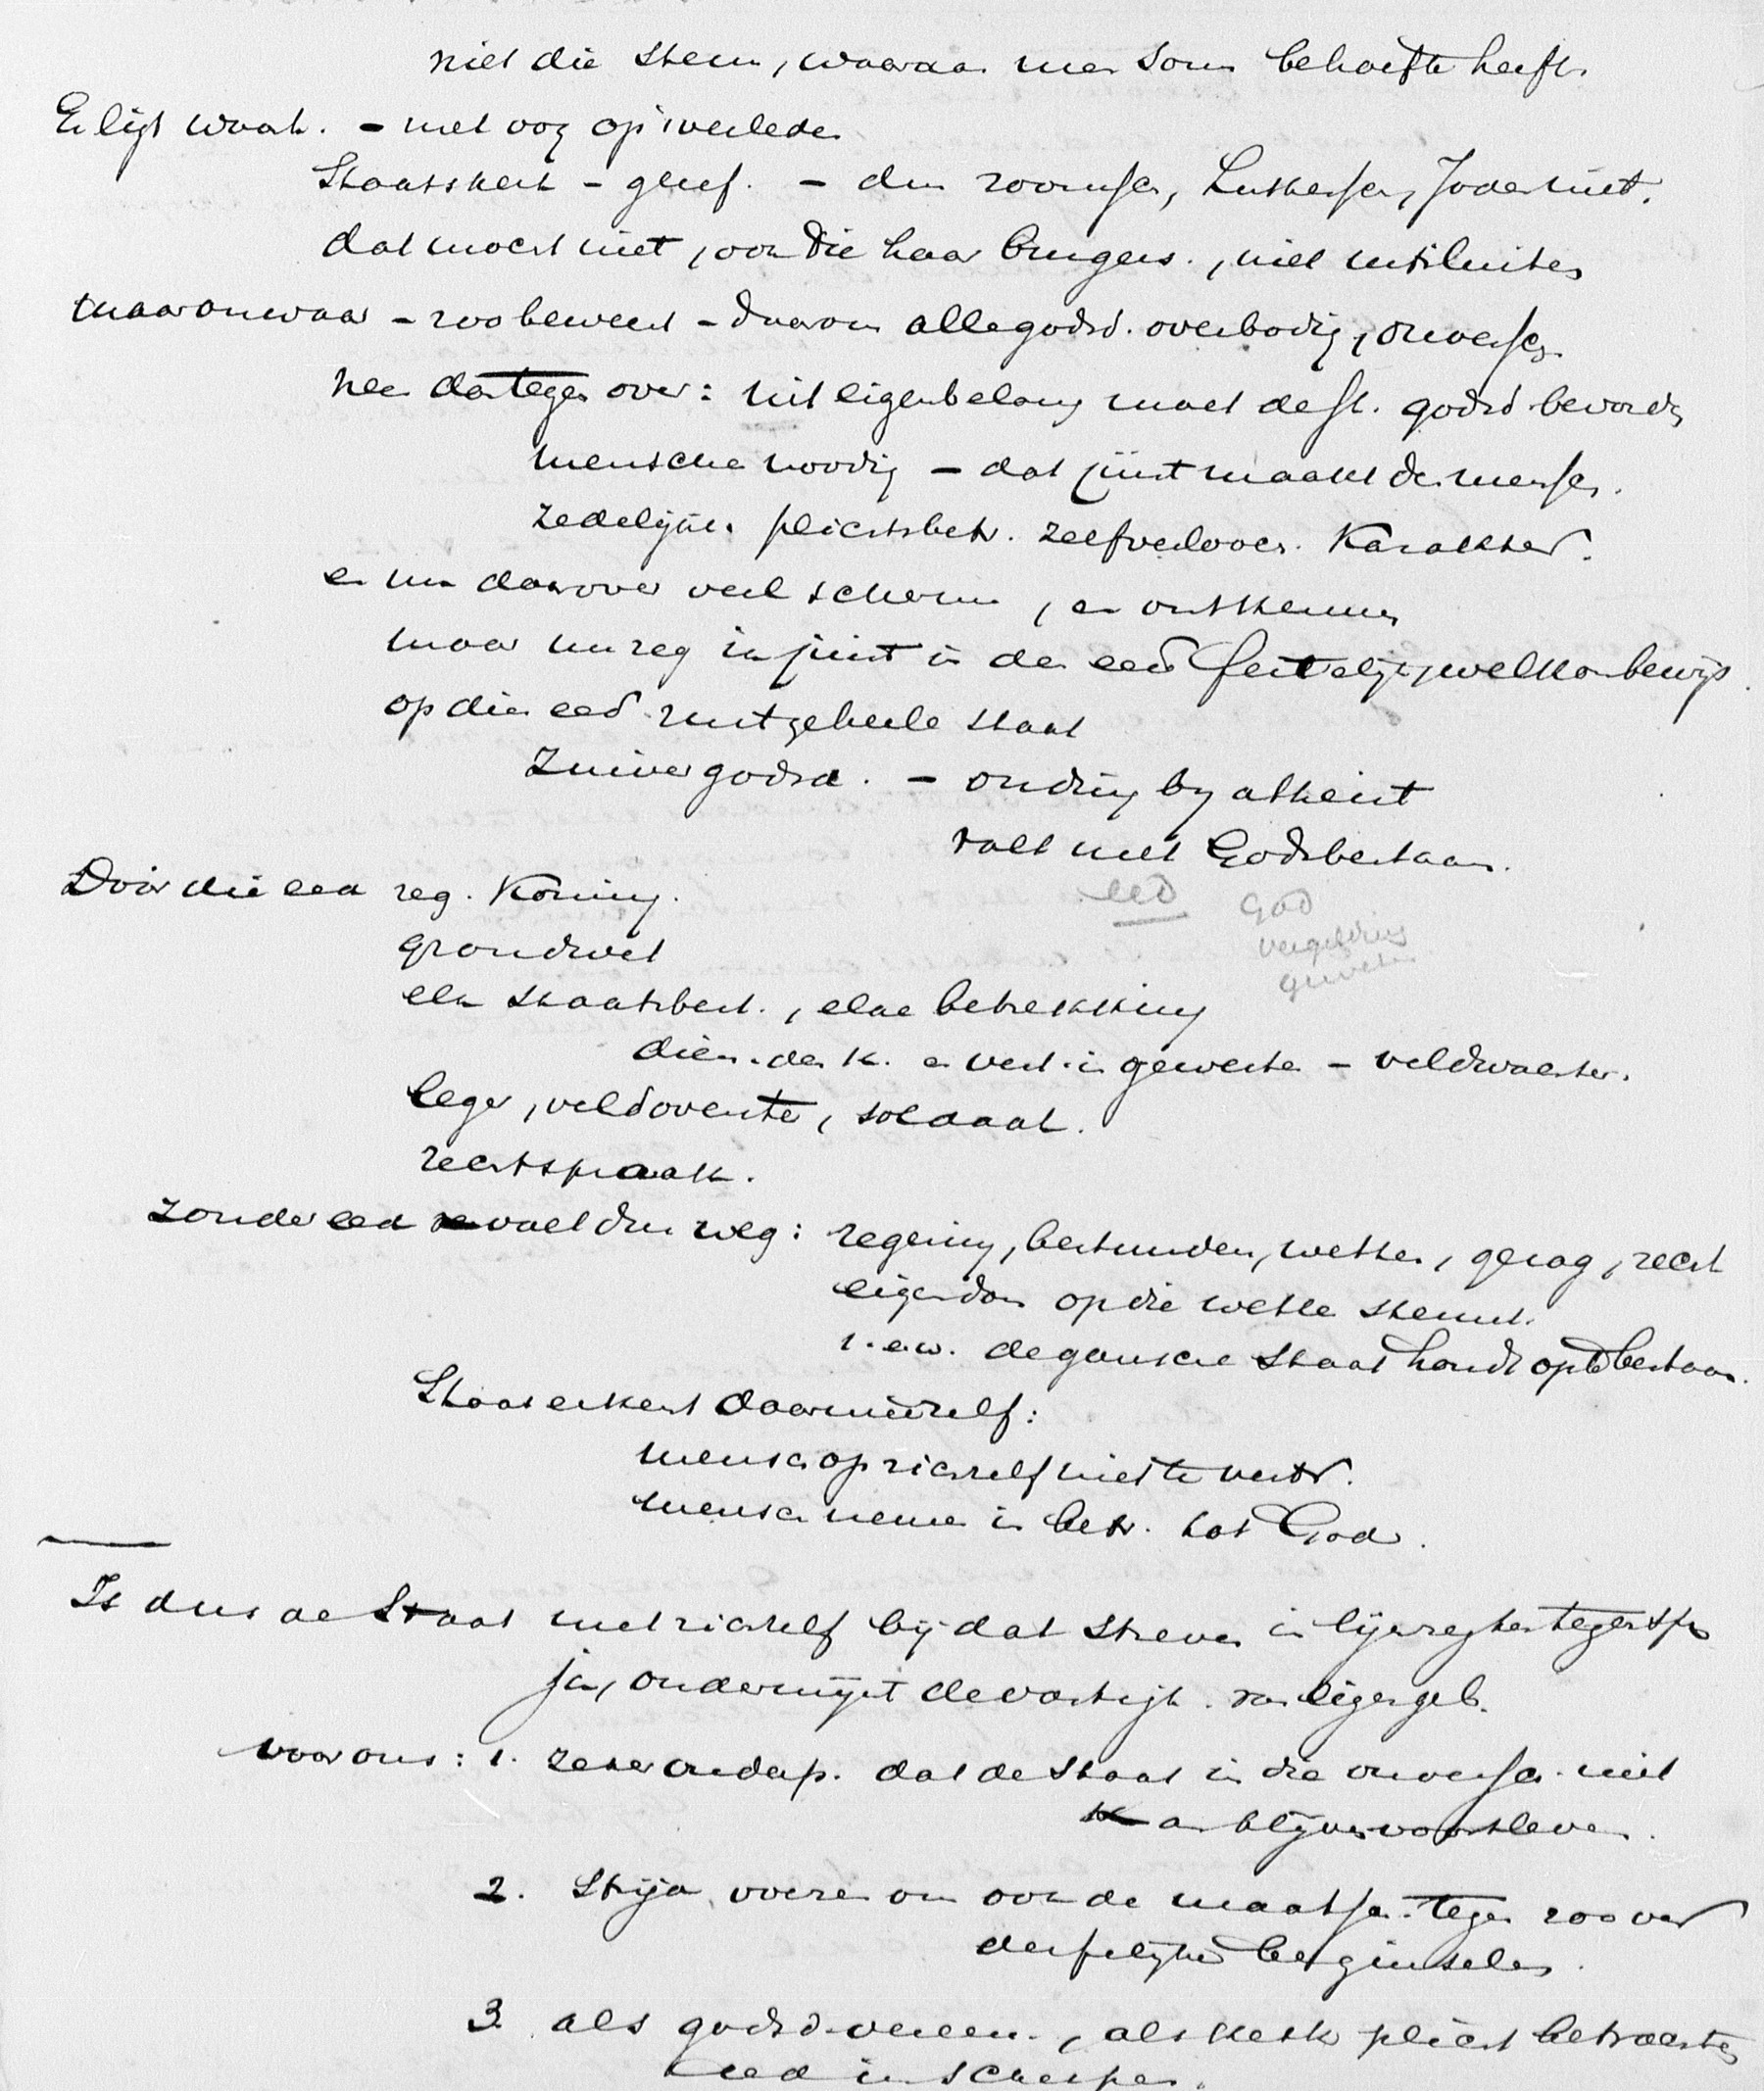 niet die stem, waaraan men soms behoefte heeft.
Er ligt waarh. - met oog op 't verleden
Staatskerk - geref. - den roomsch, Luthersch, Joden niet.
dat moest niet, ook die haar burgers, niet uitsluiten
maar onwaar - zoo beweert - daarom alle godsd. overbodig, onversch.
Neen daartegenover: uit eigenbelang moet de st. godsd. bevord.
menschen noodig - dat juist maakt de mensch.
zedelijk. plichtsbetr. zelfverlooch. Karakter.
en nu daarover veel scherm, en ontkennen
maar nu zeg ik juist in den eed feitelijk, welk een bewijs.
op dien eed rust geheele staat
Zuiver godsd. - onding by atheist
valt met Godsbestaan.
Dóór die eed reg. Koning.
eed God
vergelding
geweten
grondwet
elk staatsbest., elke betrekking
dien. der k. en vert. in gewesten - veldwachter.
leger, veldoverste, soldaat.
rechtspraak.
Zonder eed valt dus weg: regering, besturen, wetten, gezag, recht
eigendom op die wetten steunt.
i.e.w. de gansche Staat houdt op te bestaan.
Staat erkent daarmee zelf:
mensch op zichzelf niet te vertr.
mensch nemen in betr. tot God.
Is dus de Staat met zichzelf bij dat streven in lijnregten tegenspr
ja, ondermijnt de vastigh. van eigen geb.
voor ons: 1. zeker onderp. dat de Staat in die onversch. niet
kan blijven voortleven.
2. Strijd voeren om ook de maatsch. tegen zoo ver
derfelijke beginselen.
3. als godsd. vereen., als kerk plicht betrachten
eed in scherpen.